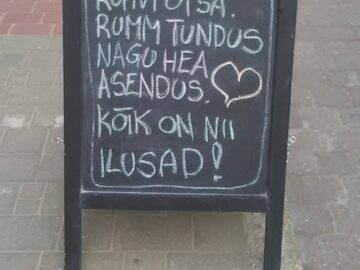 RUMM OTSA.
RUMM TUNDUS
NAGU HEA
ASENDUS.
KÕIK ON NII
ILUSAD!